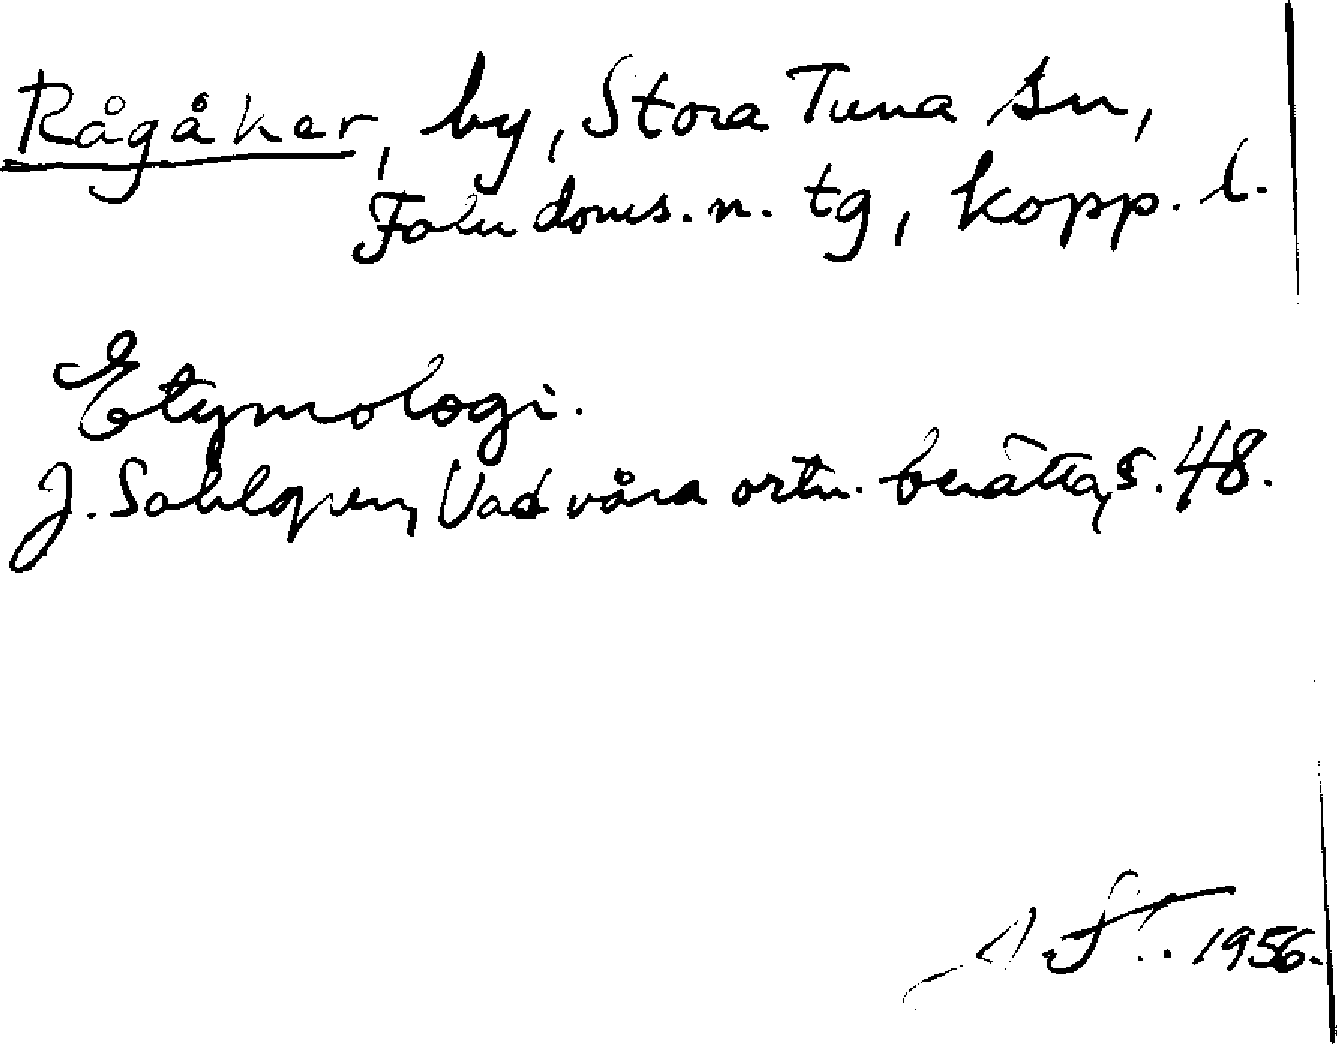 Rågåker, by, Stora Tuna sn,
Falu doms. n. tg, Kopp. l.
Etymologi.
J. Sahlgren, Vad våra ortn. berätta, s. 48.
1956.